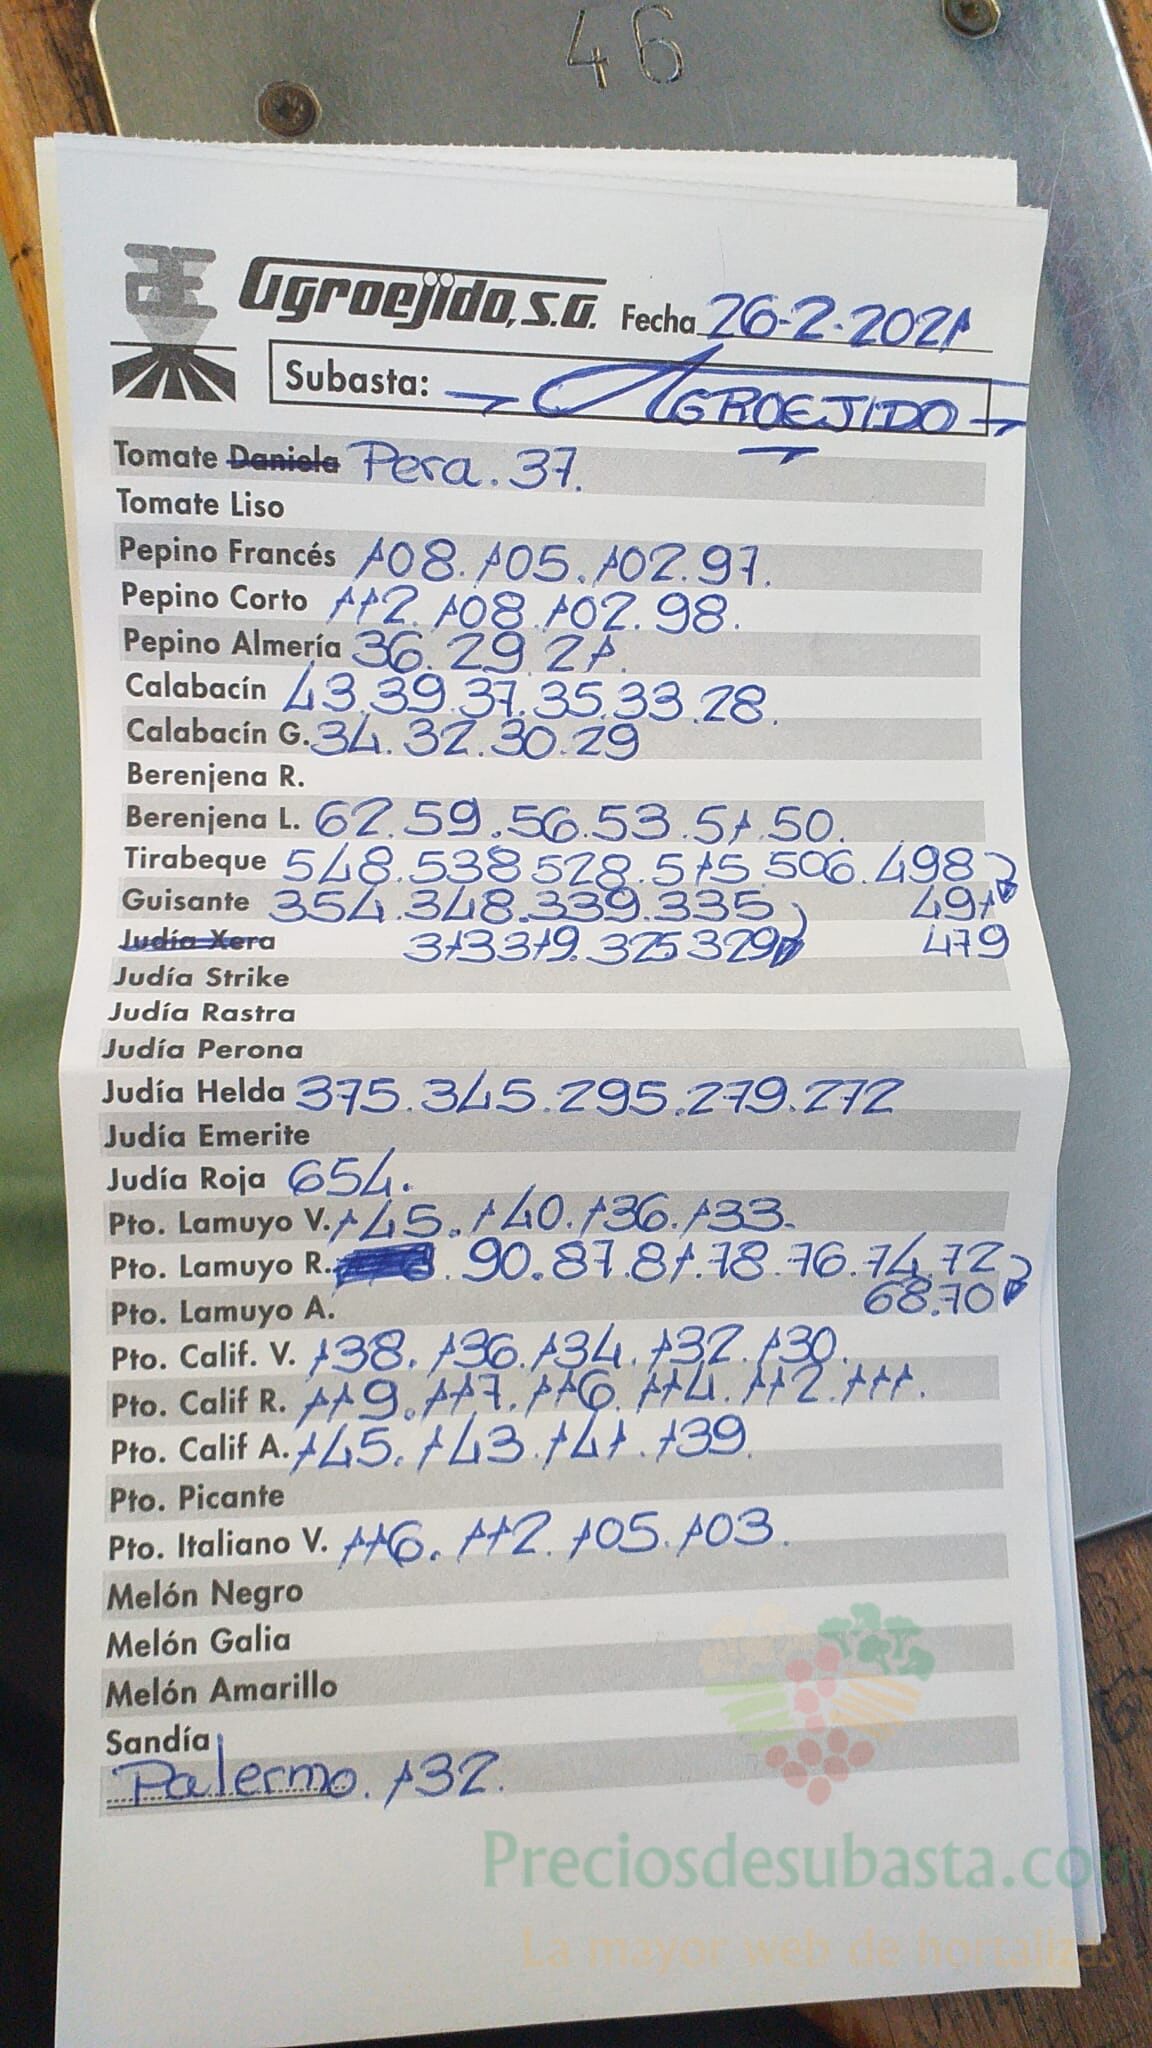 46
Agroejido, S.A. Fecha 26-2-2021
Subasta: AGROEJIDO
Tomate Daniela Pera. 37.
Tomate Liso
Pepino Francés 108. 105. 102. 97.
Pepino Corto 112. 108. 102. 98.
Pepino Almería 36. 29. 21.
Calabacín 43. 39. 37. 35. 33. 28.
Calabacín G. 34. 32. 30. 29
Berenjena R.
Berenjena L. 62. 59. 56. 53. 51. 50.
Tirabeque 548. 538 528. 515. 506. 498
Guisante 354. 348. 339. 335 491
Judía Xera 313 319. 325 329 479
Judía Strike
Judía Rastra
Judía Perona
Judía Helda 375. 345. 295. 279. 272
Judía Emerite
Judía Roja 654.
Pto. Lamuyo V. 145. 140. 136. 133.
Pto. Lamuyo R. . 90. 87. 81. 78. 76. 74. 72
Pto. Lamuyo A. 68. 70
Pto. Calif. V. 138. 136. 134. 132. 130.
Pto. Calif R. 119. 117. 116. 114. 112. 111.
Pto. Calif A. 145. 143. 141. 139.
Pto. Picante
Pto. Italiano V. 116. 112. 105. 103.
Melón Negro
Melón Galia
Melón Amarillo
Sandía
Palermo. 132.
Preciosdesubasta.com
La mayor web de hortalizas